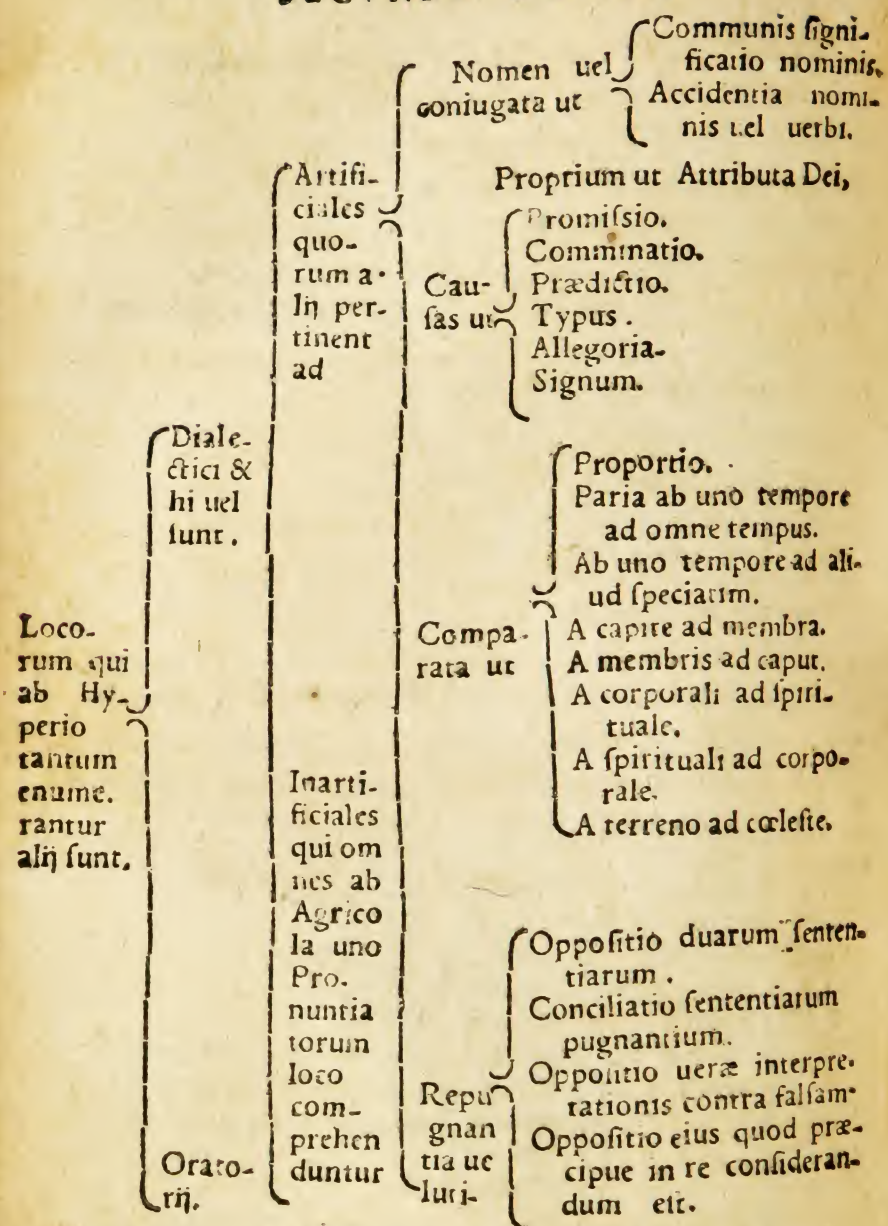 Loco-
rum qui
ab Hy-
perio
tantum
enume.
rantur
alij ſunt.
Diale-
ctici &
hi uel
ſunt.
Orato-
rij.
Artifi-
ciales
quo-
rum a-
lij per-
tinent
ad
Inarti-
ficiales
qui om
nes ab
Agrico
la uno
Pro.
nuntia
torum
loco
com-
prehen
duntur
Nomen uel
coniugata ut
Communis ſigni-
ficatio nominis.
Accidentia nomi-
nis uel uerbi.
Proprium ut Attributa Dei,
Cau-
ſas ut
Promiſsio.
Comminatio.
Prædictio.
Typus.
Allegoria-
Signum.
Compa-
rata ut
Proportio.
Paria ab uno tempore
ad omne tempus.
Ab uno tempore ad ali-
ud ſpeciatim.
A capite ad membra.
A membris ad caput.
A corporali ad ſpiri-
tuale.
A ſpirituali ad corpo-
rale.
A terreno ad cœleſte.
Repu
gnan
tia ue
luti-
Oppoſitio duarum ſenten-
tiarum.
Conciliatio ſententiarum
pugnantium.
Oppoſitio ueræ interpre-
tationis contra falſam-
Oppoſitio eius quod præ-
cipue in re conſideran-
dum eſt.